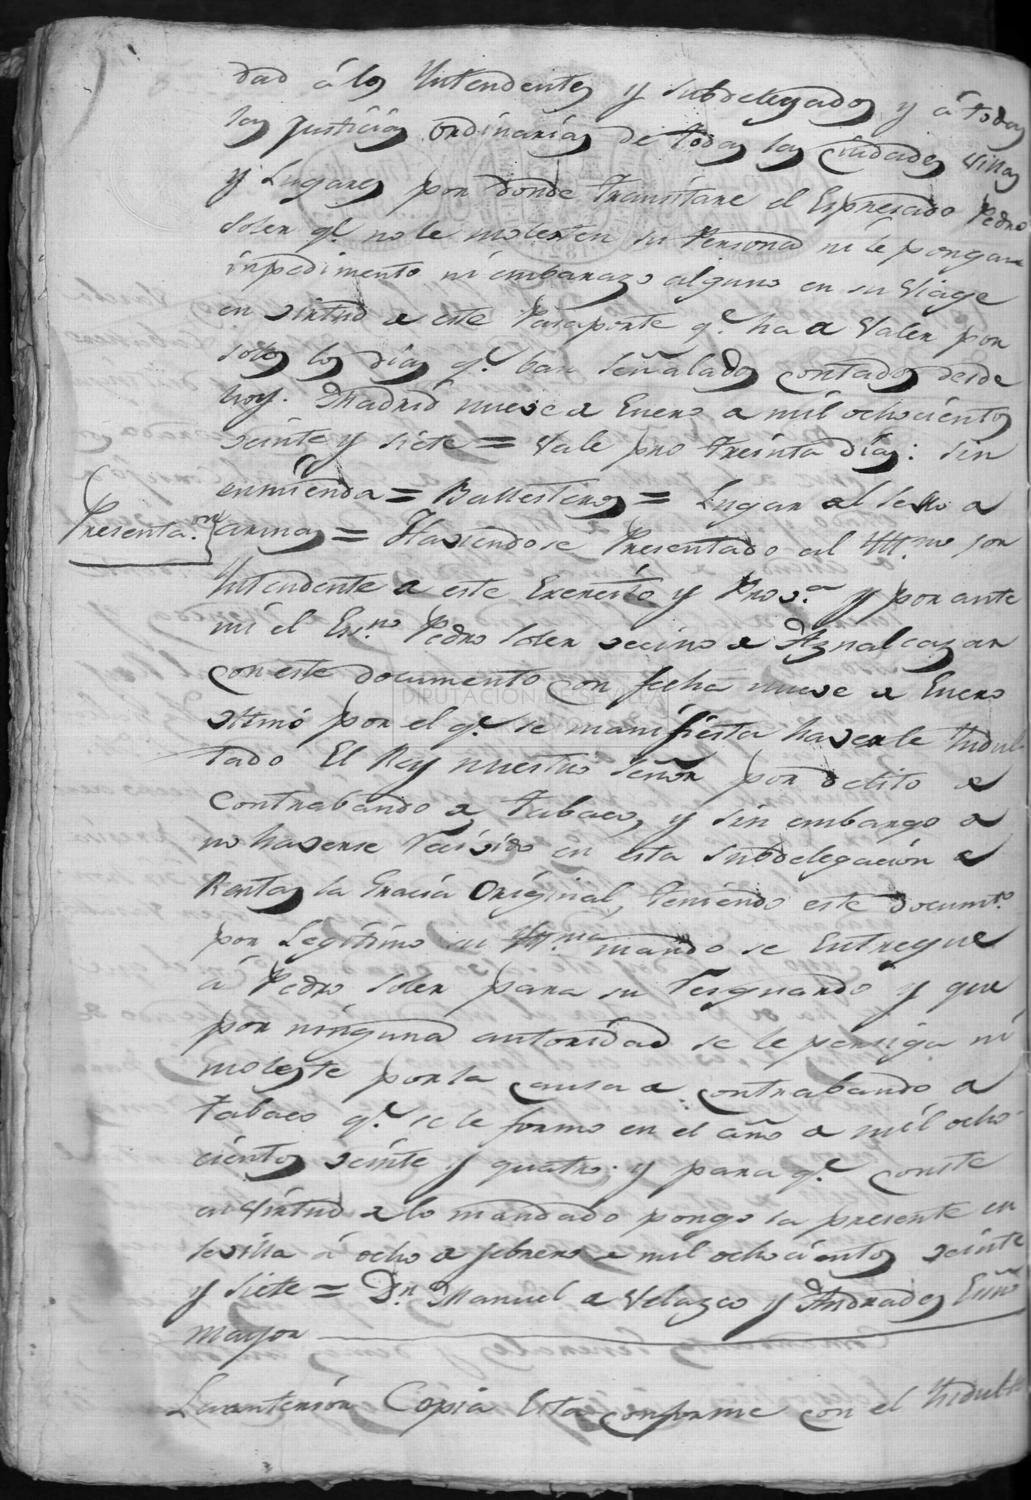 dad á los Yntendentes y subdelegados y á todas
las justicias ordinarias de todas las ciudades villas
y Lugares por donde transitare el Espresado Pedro
Soler q.e no le molesten su Persona ni le pongan
inpedimento ni embarazo alguno en su viage
en virtud de este Pasaporte q.e ha de valer por
solos los dias q.e ban señalados contados desde
hoy. Madrid nueve de Enero de mil ochocientos
veinte y siete = Vale pro treinta dias: sin
enmienda = Ballesteros = Lugar del sello de
Presenta.on armas = Haviendose Presentado al Yll.mo sor
Yntendente de este Exersito y Prov.a y por ante
mi el Ess.no Pedro Soler vecino de Aznalcazar
con este documento con fecha nueve de Enero
ultimo por el q.e se manifiesta haverle Yndul
tado El Rey nuestro Señor por delito de
contrabando de tabaco, y sin embargo de
no haverse recivido en esta subdelegación de
Rentas la Gracia Original, teniendo este docum.to
por Legitimo su Yll.ma mando se entregue
á Pedro Soler para su resguardo y que
por ninguna autoridad se le persiga ni
moleste por la causa de contrabando de
tabaco q.e se le formo en el año de mil ocho
cientos veinte y quatro. y para q.e conste
en virtud de lo mandado pongo la presente en
Sevilla á ocho de febrero de mil ochocientos veinte
y siete = D.n Manuel de Velazco y Andrades Essno
mayor
La anterior Copia Esta conforme con el Yndulto
DIPUTACIÓN DE SEVILLA